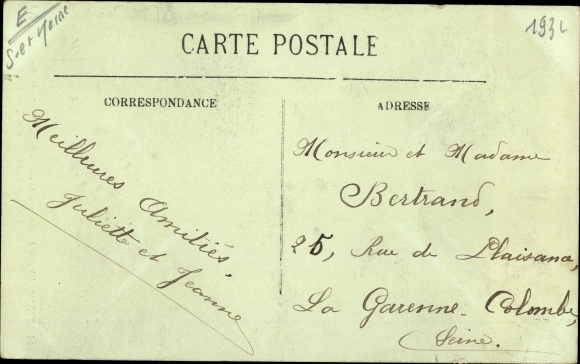 E
S-et-Marne
193
CARTE POSTALE
CORRESPONDANCE
Meilleures Amitiés,
Juliette et Jeanne
ADRESSE
Monsieur et Madame
Bertrand,
25, Rue de Plaisance,
La Garenne-Colombe,
Seine.